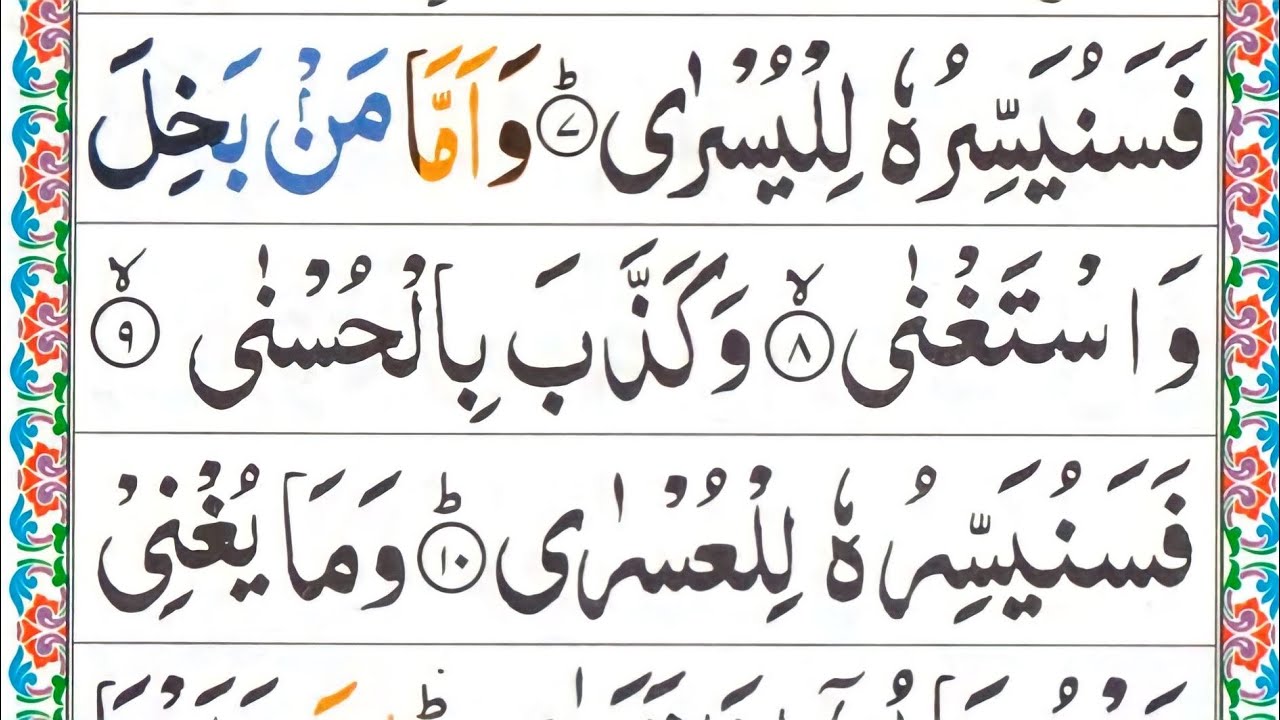 فَسَنُيَسِّرُهٗ لِلْيُسْرٰى ؕ۷ وَاَمَّا مَنْۢ بَخِلَ
وَاسْتَغْنٰى ۙ۸ وَكَذَّبَ بِالْحُسْنٰى ۙ۹
فَسَنُيَسِّرُهٗ لِلْعُسْرٰى ؕ۱۰ وَمَا يُغْنِىْ